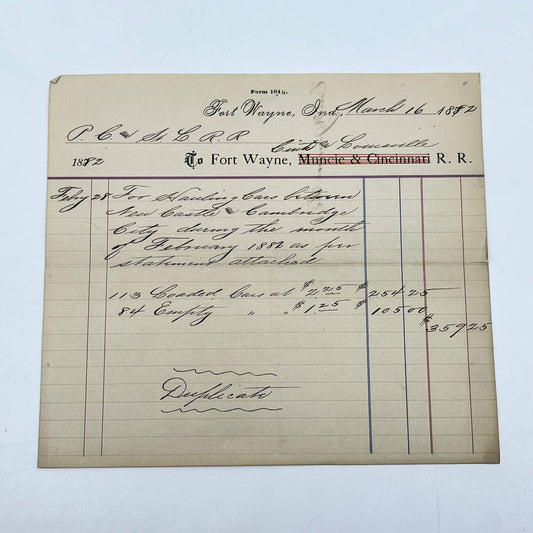 Form 104½.
Fort Wayne, Ind., March 16 1882
P. C & St. L R. R
Cinti & Louisville
1882 To Fort Wayne, Muncie & Cincinnati R. R.
Feby 28 For Hauling Cars between
New Castle & Cambridge
City during the month
of February 1882 as per
statement attached
113 Loaded Cars at $2.25 $254.25
84 Empty " " $1.25 $105.00
$359.25
Duplicate